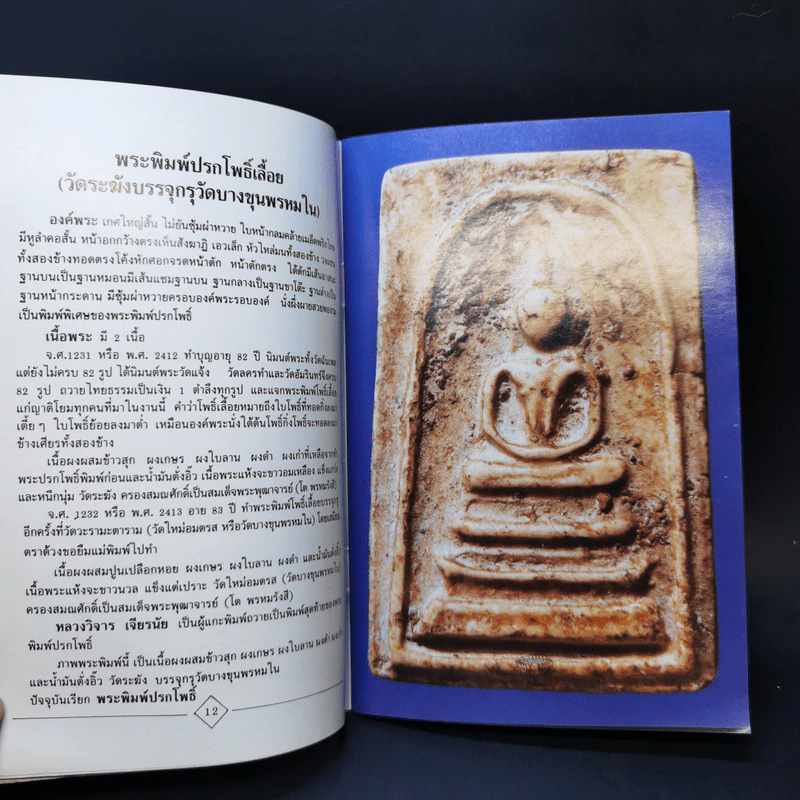 พระพิมพ์ปรกโพธิ์เลื้อย
(วัดระฆังบรรจุกรุวัดบางขุนพรหมใน)
องค์พระ เกศใหญ่สั้น ไม่ยันซุ้มผ่าหวาย ใบหน้ากลมคล้ายเมล็ดพริกไทย
มีหูลำคอสั้น หน้าอกกว้างตรงเห็นสังฆาฏิ เอวเล็ก หัวไหล่มนทั้งสองข้าง
ทั้งสองข้างทอดตรงโค้งหักศอกจรดหน้าตัก หน้าตักตรง ใต้ตักมีเส้น
ฐานบนเป็นฐานหมอนมีเส้นแซมฐานบน ฐานกลางเป็นฐานขาโต๊ะ ฐานล่างเป็น
ฐานหน้ากระดาน มีซุ้มผ่าหวายครอบองค์พระรอบองค์
เป็นพิมพ์พิเศษของพระพิมพ์ปรกโพธิ์
เนื้อพระ มี 2 เนื้อ
จ.ศ.1231 หรือ พ.ศ. 2412 ทำบุญอายุ 82 ปี นิมนต์พระทั้งวัด
แต่ยังไม่ครบ 82 รูป ได้นิมนต์พระวัดแจ้ง วัดลครทำและวัดอัมรินทร์จึงครบ
82 รูป ถวายไทยธรรมเป็นเงิน 1 ตำลึงทุกรูป และแจกพระพิมพ์โพธิ์เลื้อย
แก่ญาติโยมทุกคนที่มาในงานนี้ คำว่าโพธิ์เลื้อยหมายถึงใบโพธิ์ที่ทอดกิ่งลงมา
เตี้ย ๆ ใบโพธิ์ย้อยลงมาต่ำ เหมือนองค์พระนั่งใต้ต้นโพธิ์กิ่งโพธิ์จะทอดลงมา
ข้างเศียรทั้งสองข้าง
เนื้อผงผสมข้าวสุก ผงเกษร ผงใบลาน ผงดำ ผงเก่าที่เหลือจาก
พระปรกโพธิ์พิมพ์ก่อนและน้ำมันตั้งอิ๊ว เนื้อพระแห้งจะขาวอมเหลือง แข็งแกร่ง
และหนึกนุ่ม วัดระฆัง ครองสมณศักดิ์เป็นสมเด็จพระพุฒาจารย์ (โต พรหมรังสี)
จ.ศ. 1232 หรือ พ.ศ. 2413 อายุ 83 ปี ทำพระพิมพ์โพธิ์เลื้อยบรรจุกรุ
อีกครั้งที่วัดวะรามะตาราม (วัดใหม่อมตรส หรือวัดบางขุนพรหมใน) โดยเสมียน
ตราด้วงขอยืมแม่พิมพ์ไปทำ
เนื้อผงผสมปูนเปลือกหอย ผงเกษร ผงใบลาน ผงดำ และน้ำมันตั้งอิ๊ว
เนื้อพระแห้งจะขาวนวล แข็งแต่เปราะ วัดใหม่อมตรส (วัดบางขุนพรหมใน)
ครองสมณศักดิ์เป็นสมเด็จพระพุฒาจารย์ (โต พรหมรังสี)
หลวงวิจาร เจียรนัย เป็นผู้แกะพิมพ์ถวายเป็นพิมพ์สุดท้ายของ
พิมพ์ปรกโพธิ์
ภาพพระพิมพ์นี้ เป็นเนื้อผงผสมข้าวสุก ผงเกษร ผงใบลาน ผงดำ
และน้ำมันตั้งอิ๊ว วัดระฆัง บรรจุกรุวัดบางขุนพรหมใน
ปัจจุบันเรียก พระพิมพ์ปรกโพธิ์
12